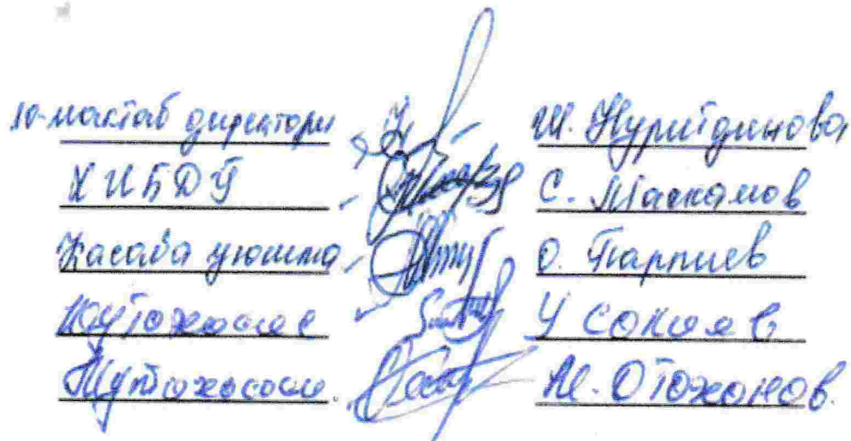 10-мактаб директори Ш. Нуритдинова
ХИБДЎ С. Маскамов
Касаба уюшма О. Тарпиев
Мутахасис У Сокиев
Мутахасис М. Отожонов.